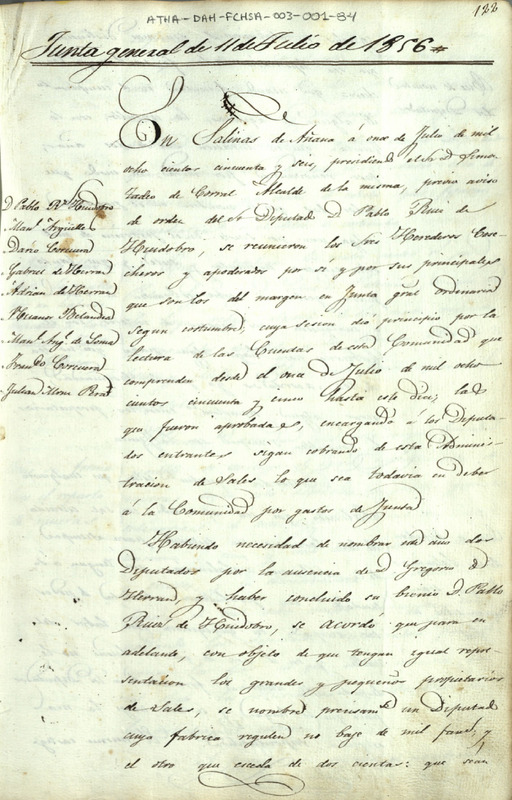 ATHA-DAH-FCHSA-003-001-84
122
Junta general de 11 de Julio de 1856
En Salinas de Añana á once de Julio de mil
ocho cientos cincuenta y seis, presidiendo el Sr D Simon
Tadeo de Corral Alcalde de la misma, previo aviso
de orden del Sr Deputado D Pablo Ruiz de
Huidobro, se reunieron los Sres Herederos Cose-
cheros y apoderados por sí y por sus principales
que son los del margen en Junta gral ordinaria
segun costumbre, cuya sesion dió principio por la
lectura de las Cuentas de esta Comunidad que
comprenden desde el once de Julio de mil ocho
cientos cincuenta y cinco hasta este dia; las
que fueron aprobadas, encargando á los Deputa-
dos entrantes sigan cobrando de esta Adminis-
tracion de Sales lo que sea todavia en deber
á la Comunidad por gastos de Junta
Habiendo necesidad de nombrar este año dos
Deputados por la ausencia de D Gregorio de
Herran, y haber concluido su bienio D. Pablo
Ruiz de Huidobro, se acordó que para en
adelante, con objeto de que tengan igual repre-
sentacion los grandes y pequeños propietarios
de Sales, se nombre precisamte un Deputado
cuya fabrica regulen no baje de mil fans, y
el otro que esceda de dos cientas: que sean
D Pablo Rz Huidobro
Manl Argüelles
Dario Corcuera
Gabriel de Herran
Adrian de Herran
Manl Angl de Loma
Corcuera
Julian